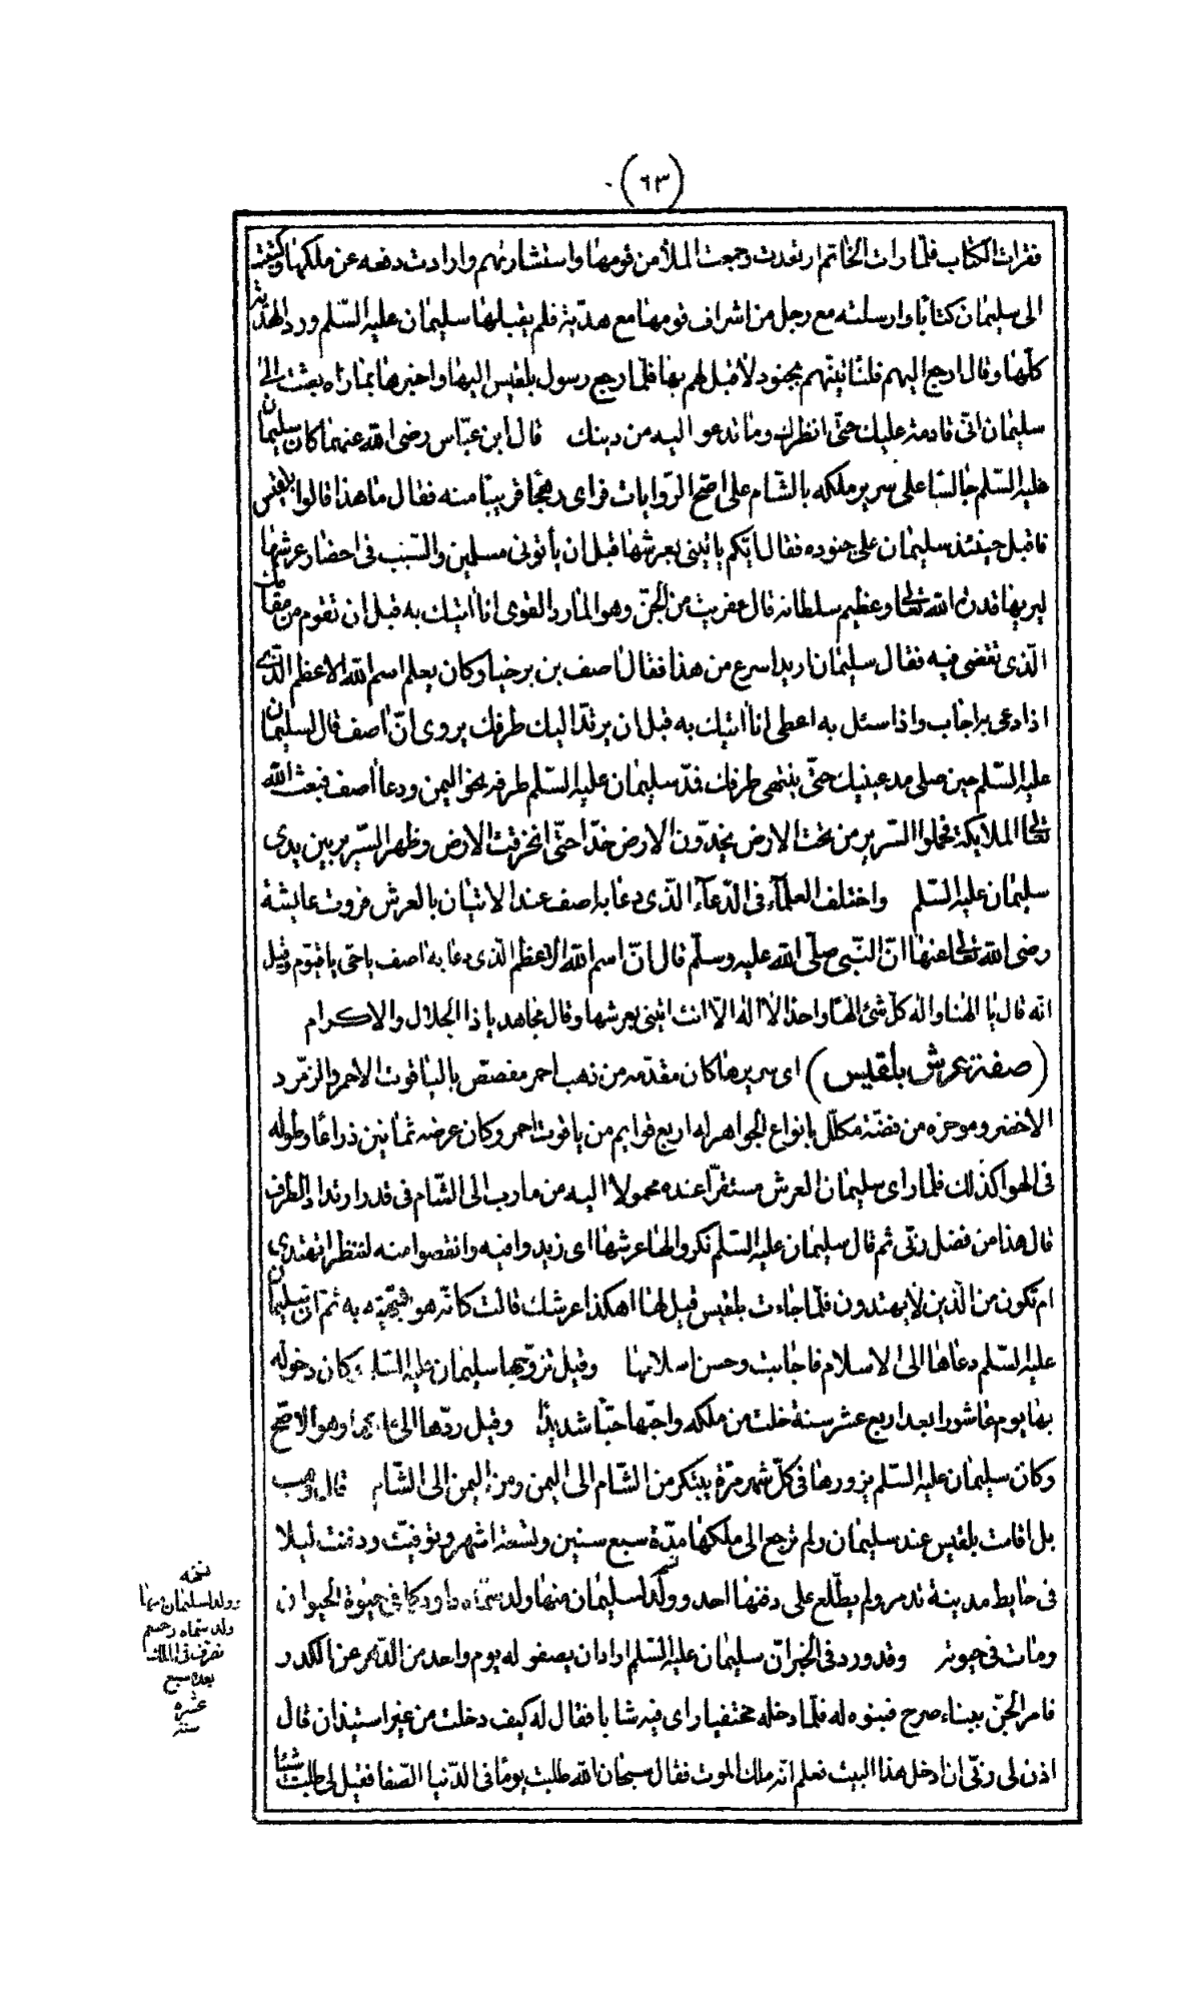 (٦٣)
فقرات الكتاب فلما رات الخاتم ارتعدت وجمعت الملأ من قومها واستشارتهم وارادت دفعه عن ملكها وكتبت
الى سليمان كتابا وارسلته مع رجل من اشراف قومها مع هديّة فلم يقبلها سليمان عليه السّلم ورد الهديّة
كلّها وقال ارجع اليهم فلنأتينّهم بجنود لا قبل لهم بها فلمّا رجع رسول بلقيس اليها واخبرها بما راه بعثت الى
سليمان انّى قادمة عليك حتّى انظر وما تدعو اليه من دينك قال ابن عبّاس رضى الله عنهما كان سليمان
عليه السّلم جالسًا على سرير ملكه بالشّام على اصّح الرّوايات فراى رهجًا قريبًا منه فقال ما هذا قالوا بلقيس
فاقبل حينئذ سليمان على جنوده فقال ايّكم ياتينى بعرشها قبل ان يأتونى مسلمين والسّبب فى احضار عرشها
ليريها قدرة الله تعالى وعظيم سلطانه قال عفريت من الجنّ وهو المارد القوى انا اتيك به قبل ان تقوم من مقامك
الّذى تقضى فيه فقال سليمان اريد اسرع من هذا فقال اصف بن برخيا وكان يعلم اسم الله الاعظم الّذى
اذا دعى به اجاب واذا سئل به اعطى انا اتيك به قبل ان يرتدّ اليك طرفك يروى انّ اصف قال لسليمان
عليه السّلم حين صلى مد عينيك حتّى ينتهى طرفك فمدّ سليمان عليه السّلم طرفه نحو اليمن ودعا اصف فبعث الله
تعالى الملايكة فحملوا السّرير من تحت الارض يخدّون الارض خدّا حتّى انخرقت الارض وظهر السّرير بين يدى
سليمان عليه السّلم واختلف العلمآء فى الدّعآء الّذى دعا به اصف عند الاتيان بالعرش فروت عايشة
رضى الله تعالى عنها انّ النّبى صلّى الله عليه وسلّم قال انّ اسم الله الاعظم الّذى دعا به اصف ياحى ياقيّوم وقيل
انّه قال يا الهنا واله كلّ شئ الهًا واحدًا لا اله الّا انت ائتنى بعرشها وقال مجاهد يا ذا الجلال والاكرام
(صفة عرش بلقيس) اى سريرها كان مقدّمه من ذهب احمر مفصّص بالياقوت الاحمر والزمّرد
الاخضر وموخره من فضّة مكلّل بانواع الجواهر له اربع قوايم من ياقوت احمر وكان عرضه ثمانين ذراعًا وطوله
فى الهوا كذلك فلمّا راى سليمان العرش مستقرّا عنده محمولا اليه من مارب الى الشّام فى قدر ارتداد الطّرف
قال هذا من فضل ربّى ثم قال سليمان عليه السّلم نكروا لها عرشها اى زيدوا فيه وانقصوا منه لننظر اتهتدى
ام تكون من الّذين لا يهتدون فلمّا جاءت بلقيس قيل لها اهكذا عرشك قالت كانّه هو فشبّهته به ثمّ ان سليمان
عليه السّلم دعاها الى الاسلام فاجابت وحسن اسلامها وقيل تزوّجها سليمان عليه السّلم وكان دخوله
بها يوم عاشورا بعد اربع عشر سنة خلت من ملكه واحبّها حبّا شديدًا وقيل ردّها الى وهو الاصّح
وكان سليمان عليه السّلم يزورها فى كلّ شهر مرّة يبتكر من الشّام الى اليمن ومن اليمن الى الشّام قال وهب
بل اقامت بلقيس عند سليمان ولم ترجع الى ملكها مدّة سبع سنين وتسعة اشهر وتوفيّت ودفنت ليلا
فى حايط مدينة تدمر ولم يطّلع على دفنها احد وولد لسليمان منها ولد سمّاه داود فى حيوة
ومات فى حيوته وقد ورد فى الخبر انّ سليمان عليه السّلم اراد ان يصفو له يوم واحد من الدّهر عن الكدر
فامر الجنّ ببناء صرح فبنوه له فلمّا دخله مختفيا راى فيه شابا فقال له كيف دخلت من غير استيذان قال
اذن لى ربّى ان ادخل هذا البيت فعلم انّه ملك الموت فقال سبحان الله طلبت يومًا فى الدّنيا الصّفا فقيل لى طلبت شيئًا
نسخه
وولد لسليمان منها
ولد سماه رحبعم
تصرّف فى الملك
بعده سبع
عشره
سنة